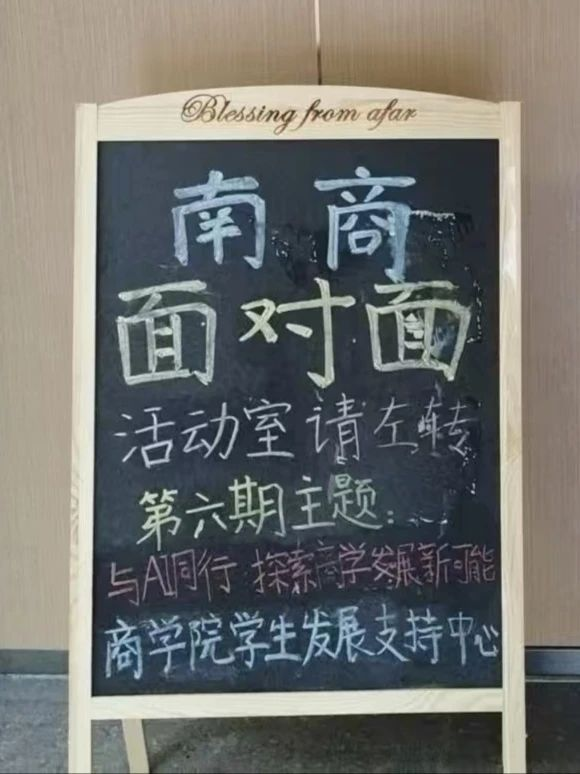 Blessing from afar
南商
面对面
活动室请左转
第六期主题：
与AI同行 探索商学发展新可能
商学院学生发展支持中心